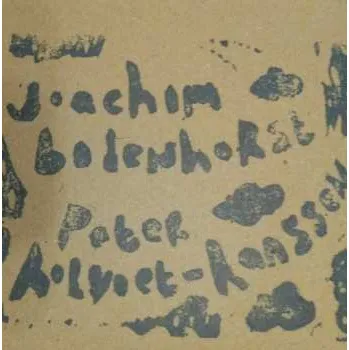 Joachim
bolenhorst
Peter
Holvoet-hanssen